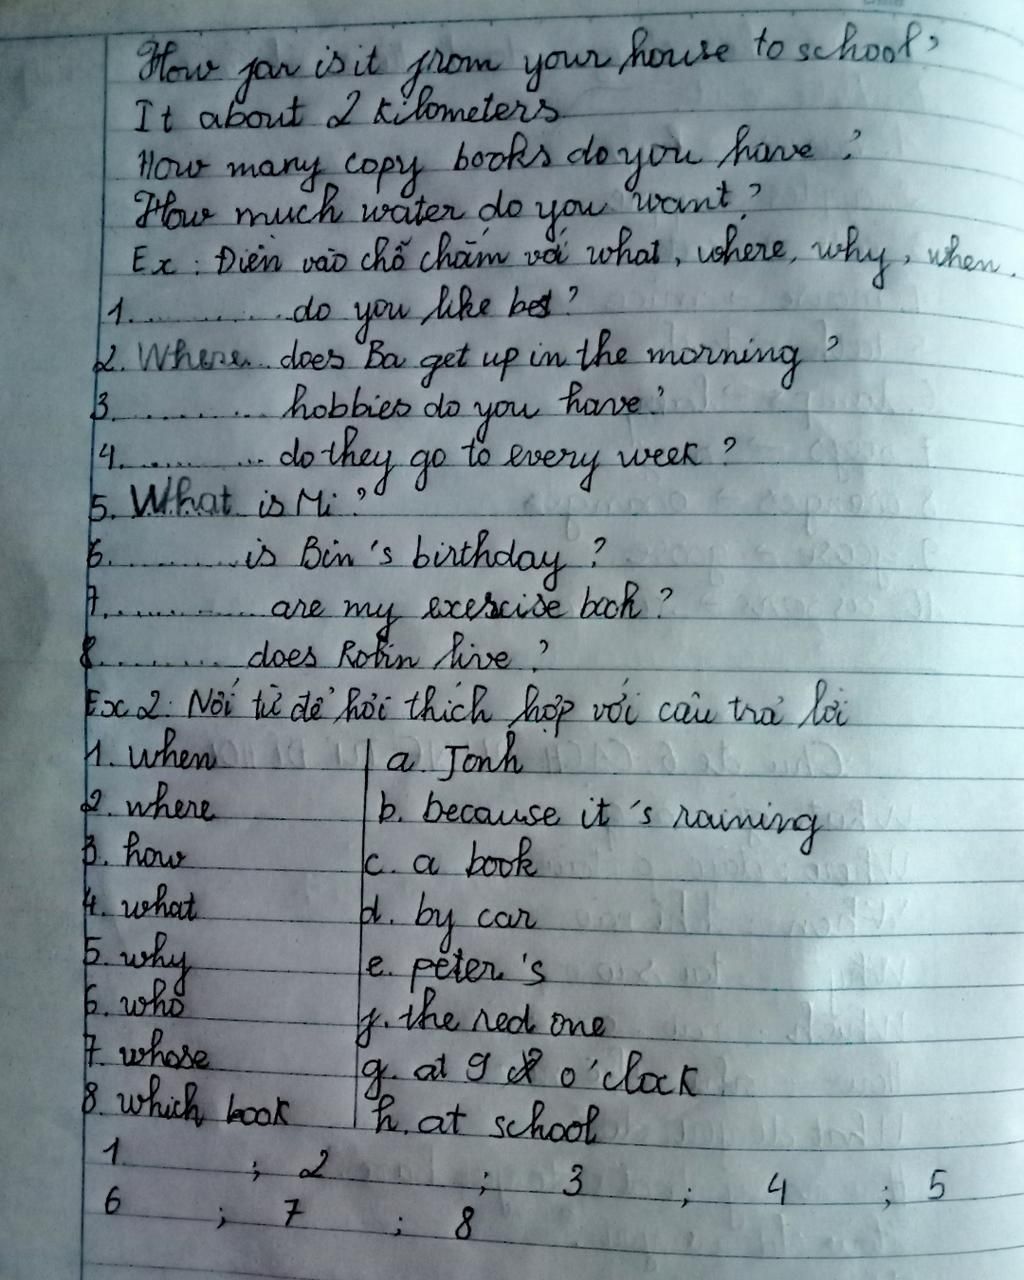 How far is it from your house to school?
It about 2 kilometers
How many copy books do you have?
How much water do you want?
Ex: Điền vào chỗ chấm với what, where, why, when.
1............do you like best?
2. Where...does Ba get up in the morning?
3.............hobbies do you have?
4.............do they go to every week?
5. What is Mi?
6............is Bin's birthday?
7.............are my exescise book?
8............does Robin live?
Ex 2: Nối từ để hỏi thích hợp với câu trả lời
1. when a. Jonh
2. where b. because it's raining
3. how c. a book
4. what d. by car
5. why e. peter's
6. who f. the red one
7. whose g. at 9 o'clock
8. which book h. at school
1 ; 2 ; 3 ; 4 ; 5
6 ; 7 ; 8